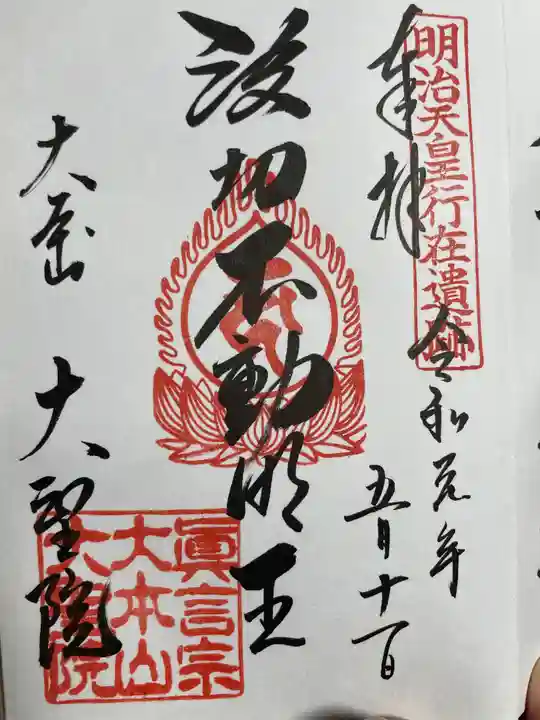 明治天皇行在遺跡
奉拝
令和元年
五月十一日
波切不動明王
大本山
大聖院
眞言宗
大本山
大聖院